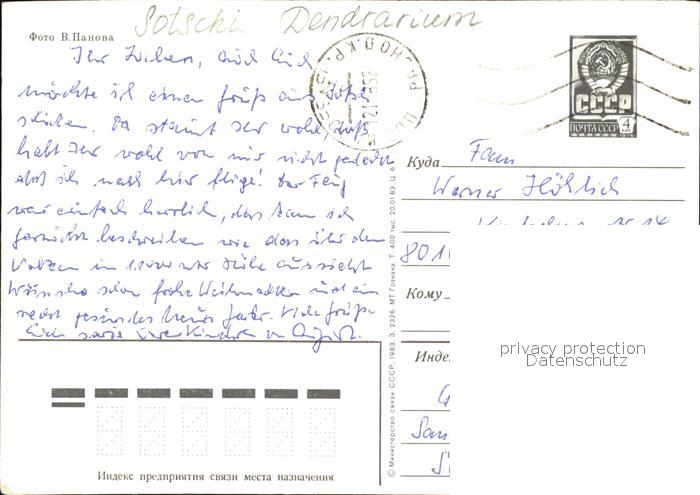 Sotschi Dendrarium
Фото В.Панова
Ihr Lieben, auch Euch
möchte ich einen Gruß aus
schicken. Da staunt Ihr wohl, das
habt Ihr wohl von mir nicht gedacht
daß ich nach hier fliege! Der Flug
war einfach herrlich, das kann ich
garnicht beschreiben wie das über den
Wolken in 11000 mtr Höhe aussieht
Wünsche schon frohe Weihnachten und ein
recht gesundes neues Jahr. Viele Grüße
Euch sowie Eure Kinder
СССР
ПОЧТА СССР
4
Куда
Fam
Werner
801
Кому
Индекс предприятия связи места назначения
© Министерство связи СССР. 1983. З. 2326. МТ Гознака. Т. 400 тыс. 20.01.83. Ц. 6
privacy protection
Datenschutz